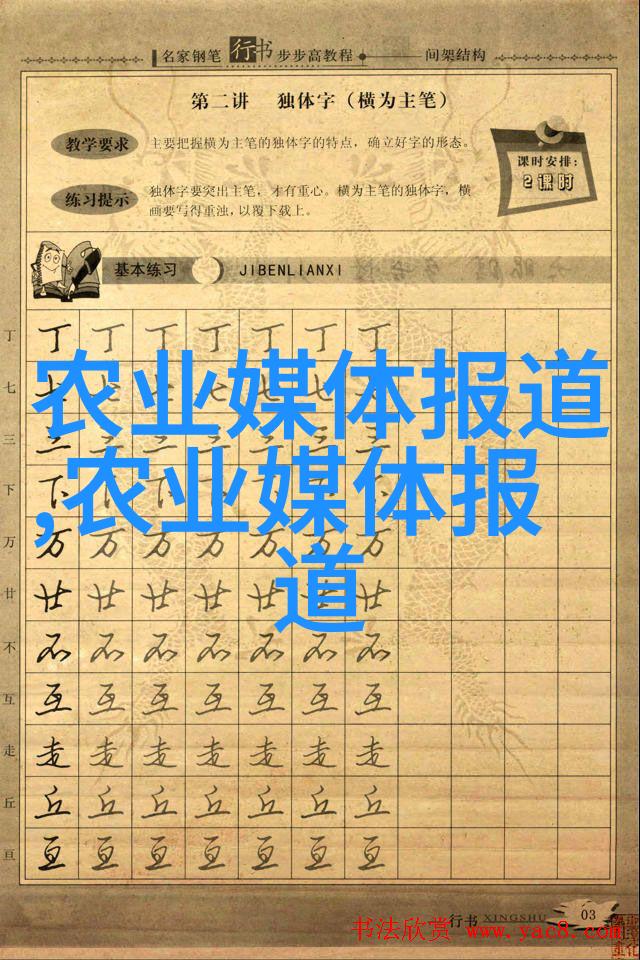 名家钢笔 行书 步步高教程 间架结构
第二讲 独体字（横为主笔）
教学要求 主要把握横为主笔的独体字的特点，确立好字的形态。
课时安排：
2课时
练习提示 独体字要突出主笔，才有重心。横为主笔的独体字，横
画要写得重浊，以覆下载上。
基本练习 JIBENLIANXI
丁 丁 丁 丁 丁 丁 丁 丁
七 七 七 七 七 七 七 七
农业媒体报道
三 三 三 三 三 三 三 三
,农业媒体报
下 下 下 下 下 下 下 下
万 万 万 万 万 万 万 万
道
廿 廿 廿 廿 廿 廿 廿 廿
不 不 不 不 不 不 不 不
互 互 互 互 互 互 互 互
走 走 走 走 走 走 走 走
丘 丘 丘 丘 丘 丘 丘 丘
亘 亘 亘 亘 亘 亘 亘 亘
行书 XINGSHU 03
书法欣赏 www.yac8.com